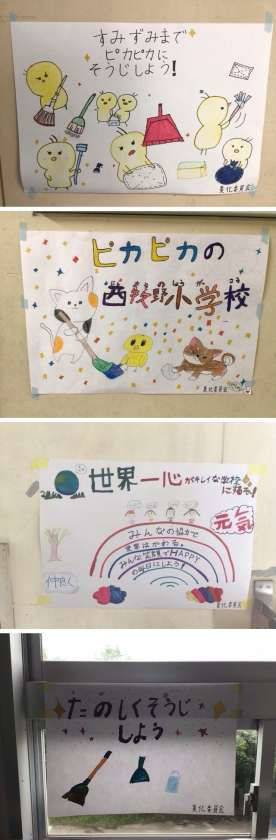 すみずみまで
ピカピカに
そうじしよう!
美化委員会
ピカピカの
西羚野小学校
美化委員会
世界一心がキレイな学校
に帰る!
元気
みんなの協力で
世界はかわる。
みんな笑顔でHAPPY
の毎日にしよう!
仲良く
美化委員会
たのしくそうじ
しよう
美化委員会